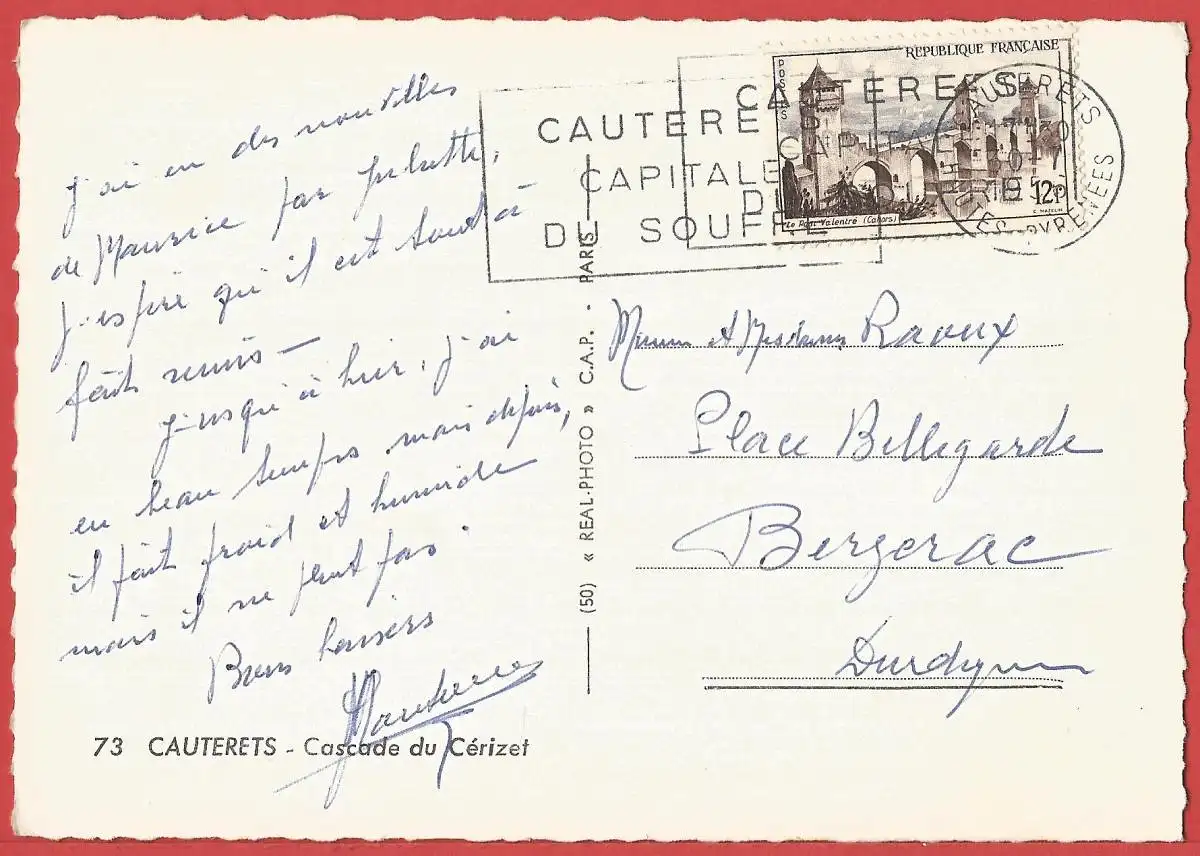 j'ai eu des nouvelles
de Maurice par Juliette,
j'espère qu'il est tout à
fait remis —
jusqu'à hier, j'ai
eu beau temps mais depuis,
il fait froid et humide
mais il ne pleut pas.
Bons baisers
73 CAUTERETS - Cascade du Cérizet
(50) « REAL-PHOTO » C.A.P. - PARIS
CAUTERETS
CAPITALE
DU SOUFFRE
CAUTERETS
CAPITAL
DU
POSTES
REPUBLIQUE FRANÇAISE
Le Pont Valentré (Cahors)
12F
C. MAZELIN
CAUTERETS
HTES PYRENEES
et Raoux
Place Bellegarde
Bergerac
Dordogne